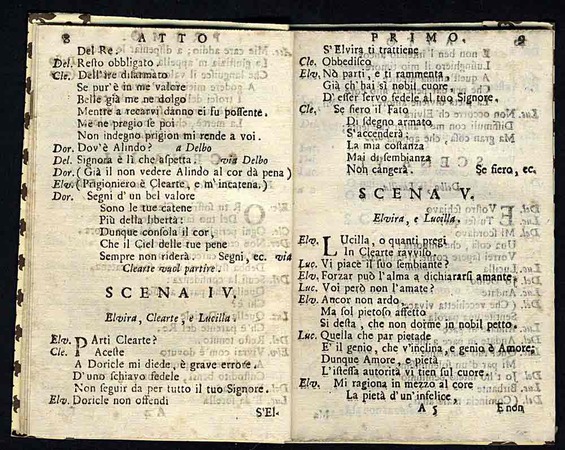 8 ATTO
Del Re.
Del. Resto obbligato.
Cle. Dell'ire disarmato
Se pur'è in me valore
Belle già me ne dolgo
Mentre a recarvi danno ei fu possente.
Me ne pregio se poi
Non indegno prigion mi rende a voi.
Dor. Dov'è Alindo? a Delbo
Del. Signora è lì che aspetta. via Delbo
Dor. (Già il non vedere Alindo al cor dà pena)
Elv. (Prigioniero è Clearte, e m'incatena.)
Dor. Segni d'un bel valore
Sono le tue catene
Più della libertà:
Dunque consola il cor,
Che il Ciel delle tue pene
Sempre non riderà. Segni, ec. via
Clearte vuol partire.
SCENA IV.
Elvira, Clearte, e Lucilla.
Elv. PArti Clearte?
Cle. Aceste
A Doricle mi diede, è grave errore,
D'uno schiavo fedele
Non seguir da per tutto il tuo Signore.
Elv. Doricle non offendi
S'El-
PRIMO. 9
S'Elvira ti trattiene
Cle. Obbedisco
Elv. Nò parti, e ti rammenta
Già ch'hai sì nobil cuore
D'esser servo fedele al tuo Signore.
Cle. Se fiero il Fato
Di sdegno armato
S'accenderà:
La mia costanza
Mai di sembianza
Non cangerà. Se fiero, ec.
SCENA V.
Elvira, e Lucilla.
Elv. LUcilla, o quanti pregi
In Clearte ravviso.
Luc. Vi piace il suo sembiante?
Elv. Forzar può l'alma a dichiararsi amante,
Luc. Voi però non l'amate?
Elv. Ancor non ardo,
Ma sol pietoso affetto
Si desta, che non dorme in nobil petto.
Luc. Quella che par pietade
E' il genio, che v'inclina, e genio è Amore;
Dunque Amore, e pietà
L'istessa autorità vi tien sul cuore.
Elv. Mi ragiona in mezzo al core
La pietà d'un'infelice,
A 5 E non